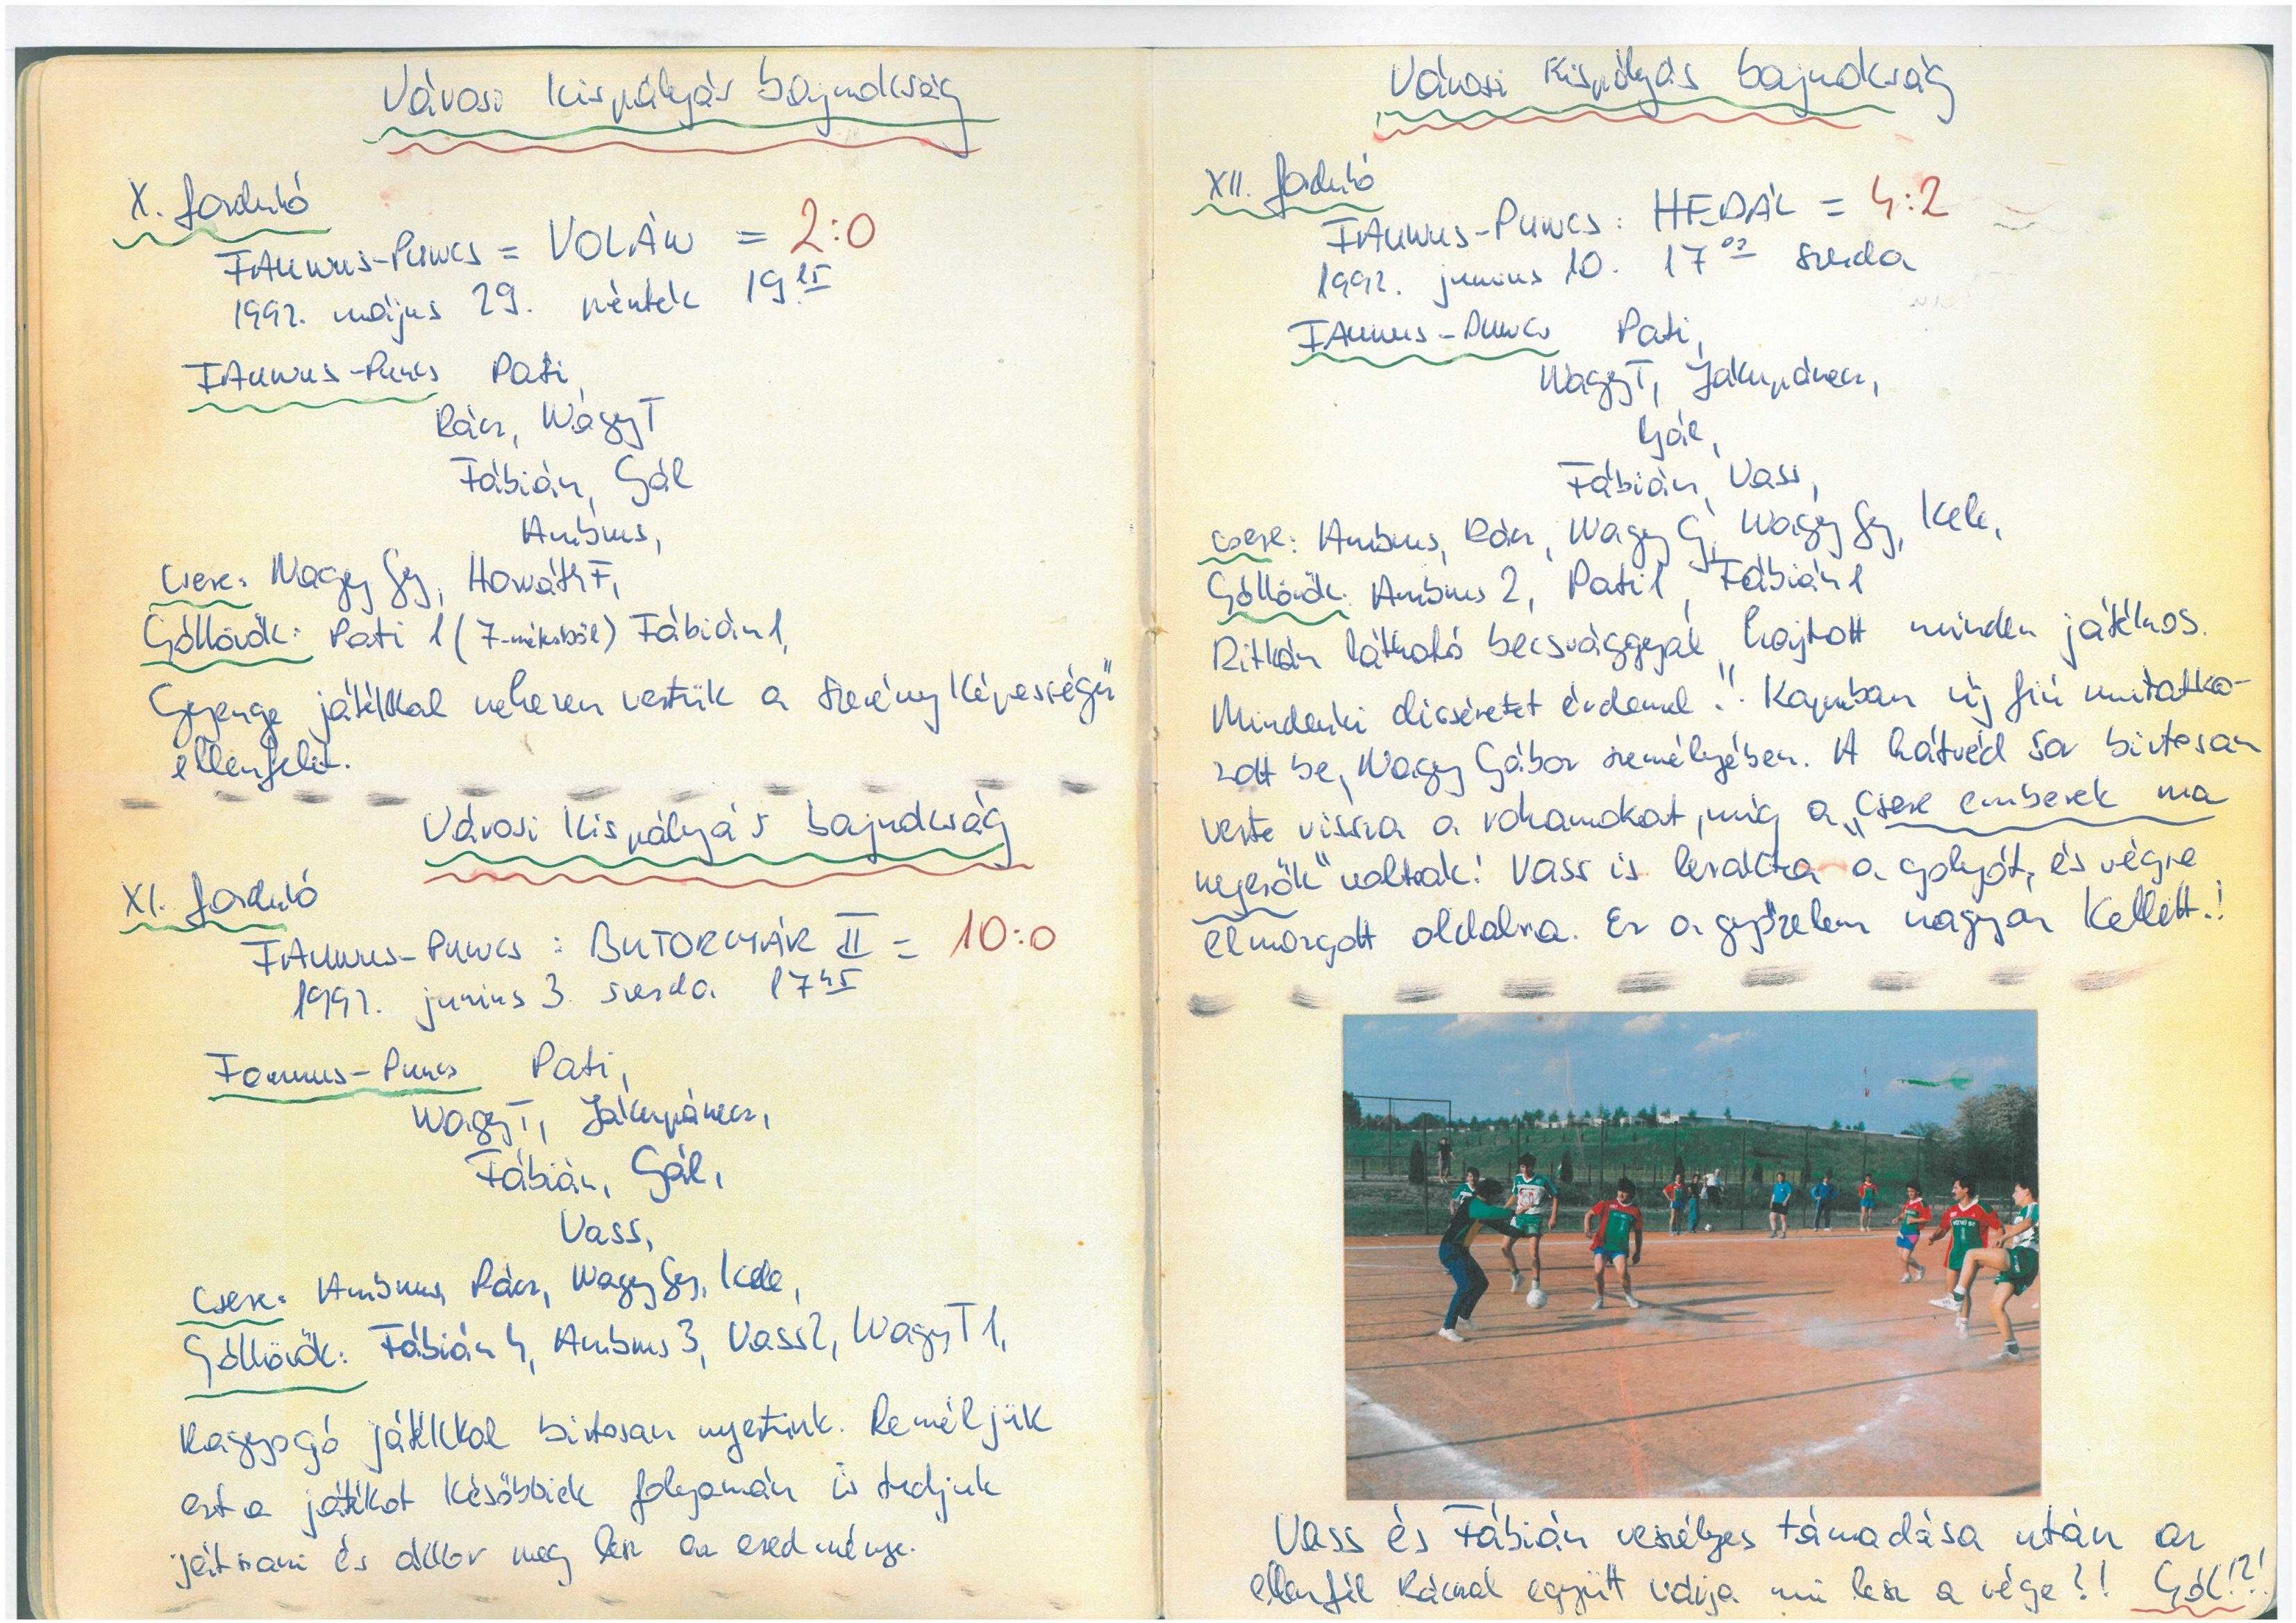 Városi kispályás bajnokság
X. forduló
FAUNUS-PUNCS = VOLÁN = 2:0
1992. május 29. péntek 19 15
FAUNUS-Puncs Pati,
Rácz, Nagy T
Fábián, Gál
Ambrus,
Csere: Nagy Gy, Horváth F,
Góllövők: Pati 1 (7-méteresből) Fábián 1,
Gyenge játékkal nehezen vertük a szerény képességű
ellenfelet.
Városi Kispályás bajnokság
XI. forduló
FAUNUS-PUNCS : BUTORGYÁR II = 10:0
1992. junius 3. szerda 17 45
Faunus-Puncs Pati,
Nagy T, Jakupánecz,
Fábián, Gál,
Vass,
Csere: Ambrus, Rácz, Nagy Gy, Kele,
Góllövők: Fábián 4, Ambrus 3, Vass 2, Nagy T 1,
Ragyogó játékkal biztosan nyertünk. Reméljük
ezt a játékot későbbiek folyamán is tudjuk
játszani és akkor meg lesz az eredménye.
Városi Kispályás bajnokság
XII. forduló
FAUNUS-PUNCS : HEDÁL = 4:2
1992. junius 10. 17 00 szerda
FAUNUS-PUNCS Pati,
Nagy T, Jakupánecz,
Gál,
Fábián, Vass,
csere: Ambrus, Rácz, Nagy G, Nagy Gy, Kele,
Góllövők: Ambrus 2, Pati 1, Fábián 1
Ritkán látható becsvággyal "hajtott minden játékos.
Mindenki dicséretet érdemel!" Kapuban új fiú mutatko-
zott be, Nagy Gábor személyében. A hátvéd sor biztosan
verte vissza a rohamokat, míg a "Csere emberek ma
nyerők" voltak! Vass is lerakta a golyót, és végre
elmozgott oldalra. Ez a győzelem nagyon Kellett.!
Vass és Fábián veszélyes támadása után az
ellenfél Ráczal együtt várja mi lesz a vége?! Gól!?!